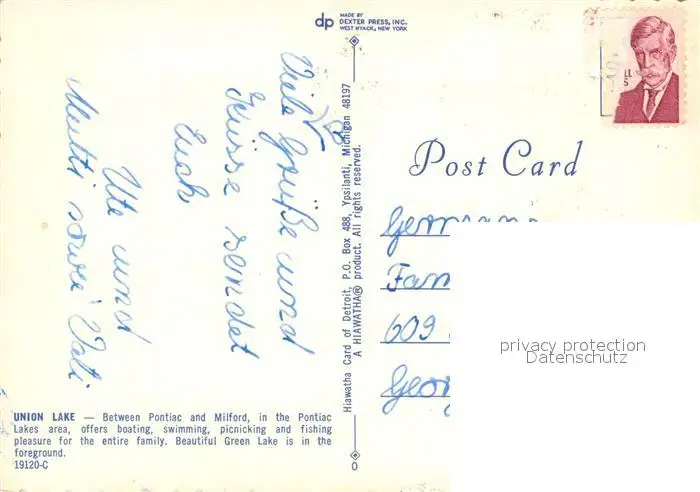 dp MADE BY
DEXTER PRESS, INC.
WEST NYACK, NEW YORK
Post Card
Viele Grüße und
Küsse sendet
Euch
Ute und
Mutti sowie Vati
Hiawatha Card of Detroit, P.O. Box 488, Ypsilanti, Michigan 48197
A HIAWATHA® product. All rights reserved.
Fam
609
privacy protection
Datenschutz
UNION LAKE — Between Pontiac and Milford, in the Pontiac
Lakes area, offers boating, swimming, picnicking and fishing
pleasure for the entire family. Beautiful Green Lake is in the
foreground.
19120-C